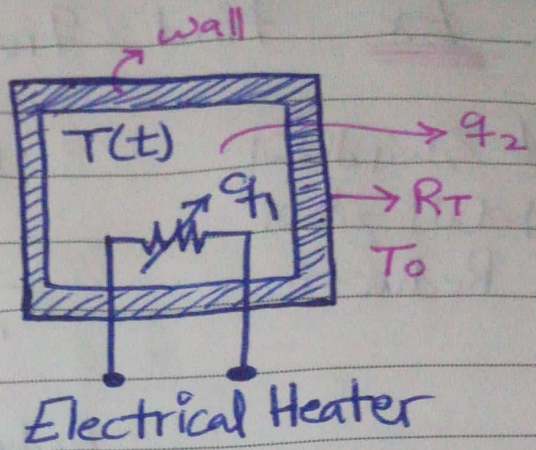 wall
T(t)
q₂
q₁
RT
To
Electrical Heater